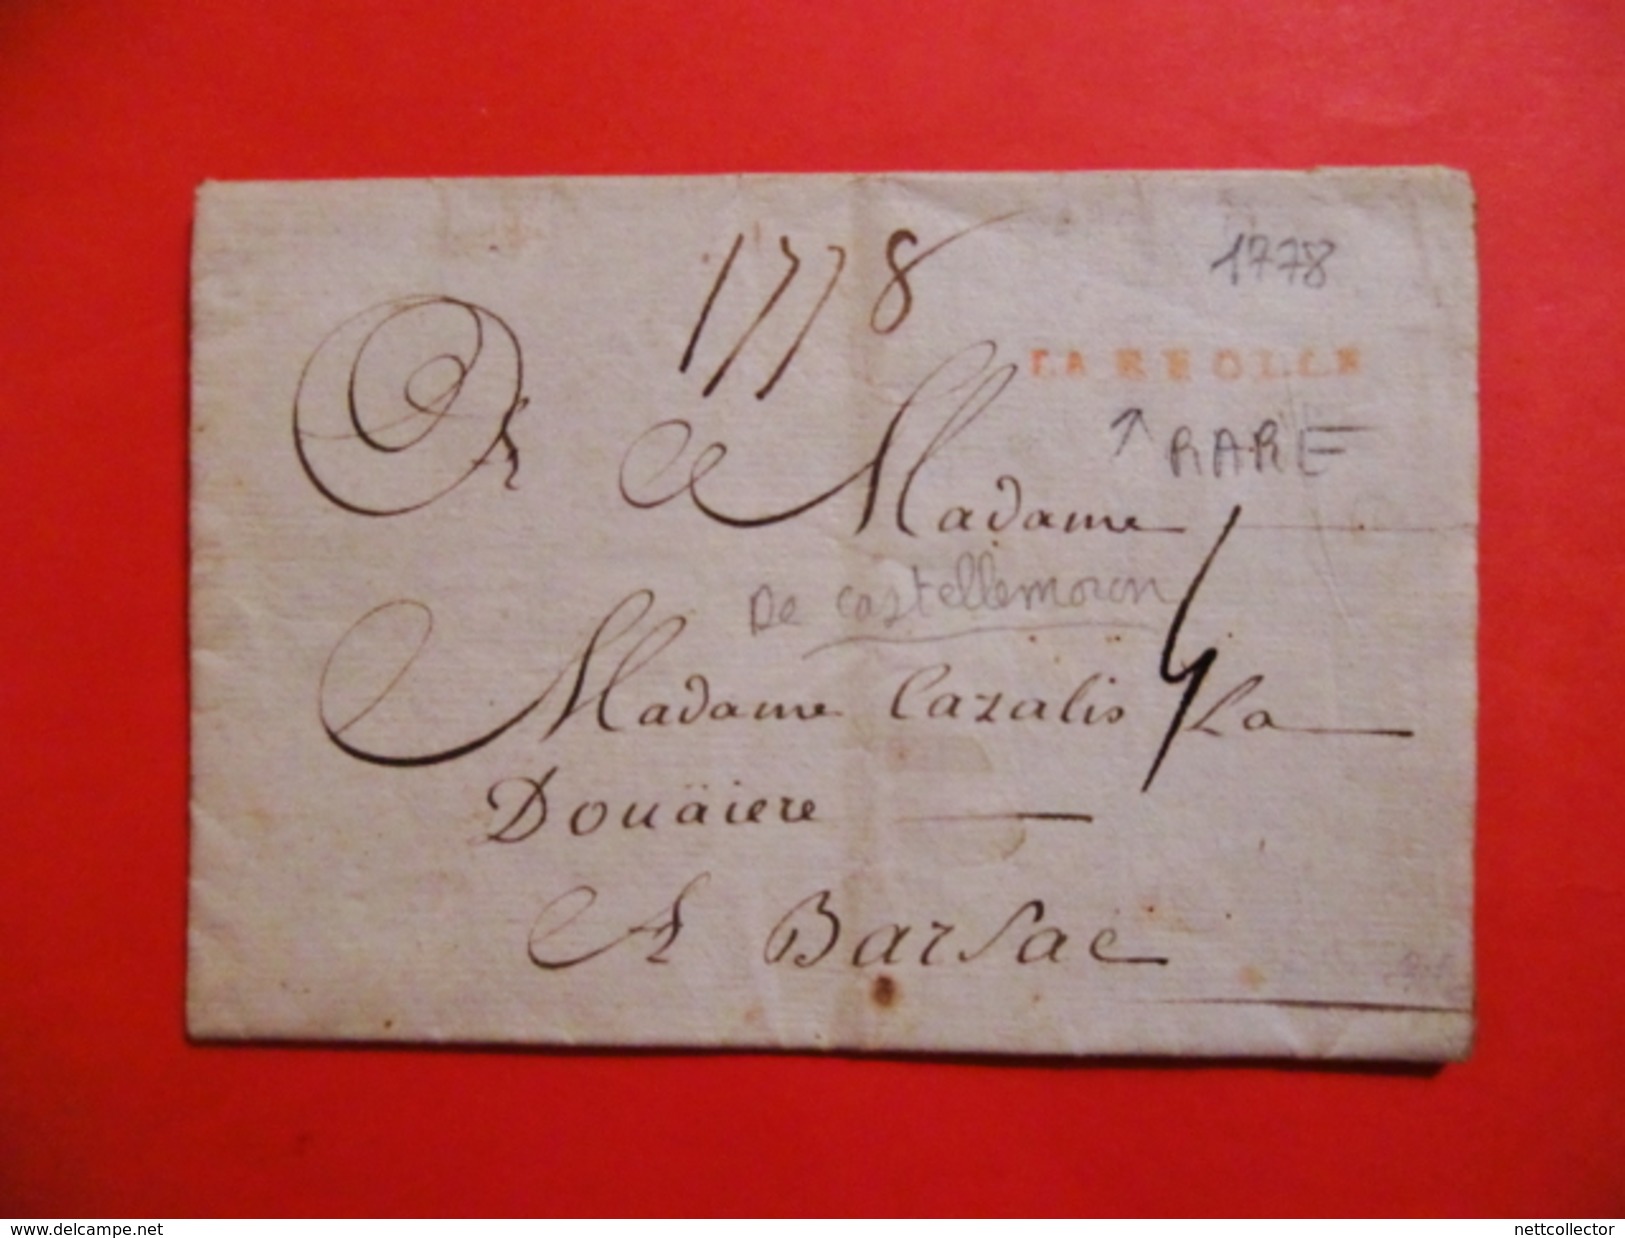 1778
1778
LA REOLLE
↑ RARE
A Madame
De castellemoron
4
Madame Cazalis La
Doüaiere
A Barsac
delcampe.net
nettcollector